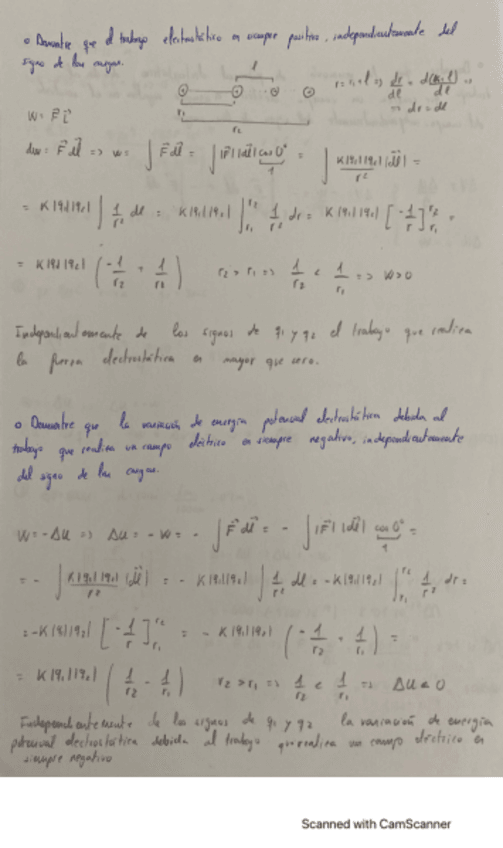 o Demuestre que el trabajo electrostático es siempre positivo, independientemente del
signo de las cargas.
l
r = r₁ + l => dr/dl = d(r₁+l)/dl
=> dr = dl
r₁
r₂
W = F⃗ L⃗
dw = F⃗ dl⃗ => w = ∫ F⃗ dl⃗ = ∫ |F⃗| |dl⃗| cos 0° = ∫ K|q₁||q₂|/r² |dl⃗| =
1
= K|q₁||q₂| ∫ 1/r² dl = K|q₁||q₂| ∫_r₁^r₂ 1/r² dr = K|q₁||q₂| [-1/r]_r₁^r₂ =
= K|q₁||q₂| (-1/r₂ + 1/r₁) r₂ > r₁ => 1/r₂ < 1/r₁ => W > 0
Independientemente de los signos de q₁ y q₂ el trabajo que realiza
la fuerza electrostática es mayor que cero.
o Demuestre que la variación de energía potencial electrostática debida al
trabajo que realiza un campo eléctrico es siempre negativo, independientemente
del signo de las cargas.
W = -ΔU => ΔU = -W = - ∫ F⃗ dl⃗ = - ∫ |F⃗| |dl⃗| cos 0° =
1
= - ∫ K|q₁||q₂|/r² |dl⃗| = - K|q₁||q₂| ∫ 1/r² dl = -K|q₁||q₂| ∫_r₁^r₂ 1/r² dr =
= -K|q₁||q₂| [-1/r]_r₁^r₂ = - K|q₁||q₂| (-1/r₂ + 1/r₁) =
= K|q₁||q₂| (1/r₂ - 1/r₁) r₂ > r₁ => 1/r₂ < 1/r₁ => ΔU < 0
Independientemente de los signos de q₁ y q₂ la variación de energía
potencial electrostática debida al trabajo que realiza un campo eléctrico es
siempre negativo
Scanned with CamScanner